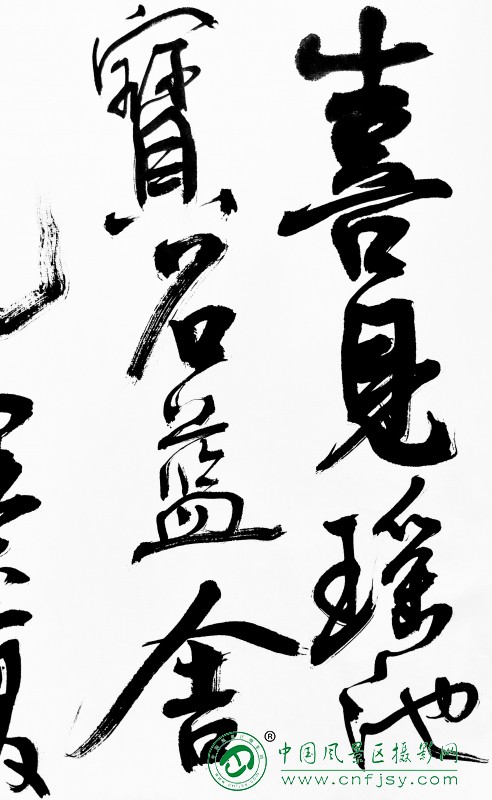 喜見瑶池
寶石蓝舍
® 中国风景区摄影网
www.cnfjsy.com